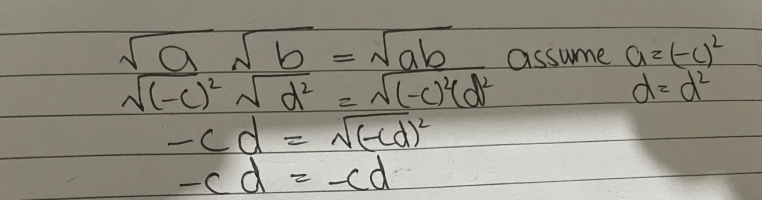 √a √b = √ab assume a = (-c)²
√(-c)² √d² = √(-c)²(d² d = d²
-cd = √(-cd)²
-cd = -cd